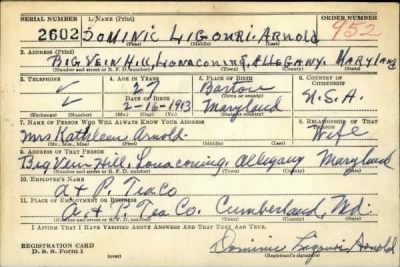 SERIAL NUMBER 1. NAME (Print) ORDER NUMBER
2602 DOMINIC LIGOURI. ARNOLD 952
(First) (Middle) (Last)
2. ADDRESS (Print)
BIG VEIN HILL, LONACONING, ALLEGANY. MARYLAND
(Number and street or R. F. D. number) (Town) (County) (State)
3. TELEPHONE 4. AGE IN YEARS 5. PLACE OF BIRTH 6. COUNTRY OF CITIZENSHIP
27 Barton
DATE OF BIRTH (Town or county)
2-16-1913 Maryland U.S.A.
(Mo.) (Day) (Yr.) (State or country)
7. NAME OF PERSON WHO WILL ALWAYS KNOW YOUR ADDRESS 8. RELATIONSHIP OF THAT PERSON
Mrs Kathleen Arnold. Wife
(Mr., Mrs., Miss) (First) (Middle) (Last)
9. ADDRESS OF THAT PERSON
Big Vein-Hill, Lonaconing, Allegany Maryland
(Number and street or R. F. D. number) (Town) (County) (State)
10. EMPLOYER'S NAME
A & P. Tea Co
11. PLACE OF EMPLOYMENT OR BUSINESS
A. & P. Tea Co. Cumberland, Md.
(Number and street or R. F. D. number) (Town) (County) (State)
I AFFIRM THAT I HAVE VERIFIED ABOVE ANSWERS AND THAT THEY ARE TRUE.
REGISTRATION CARD
D. S. S. Form 1 Dominic Ligouri Arnold